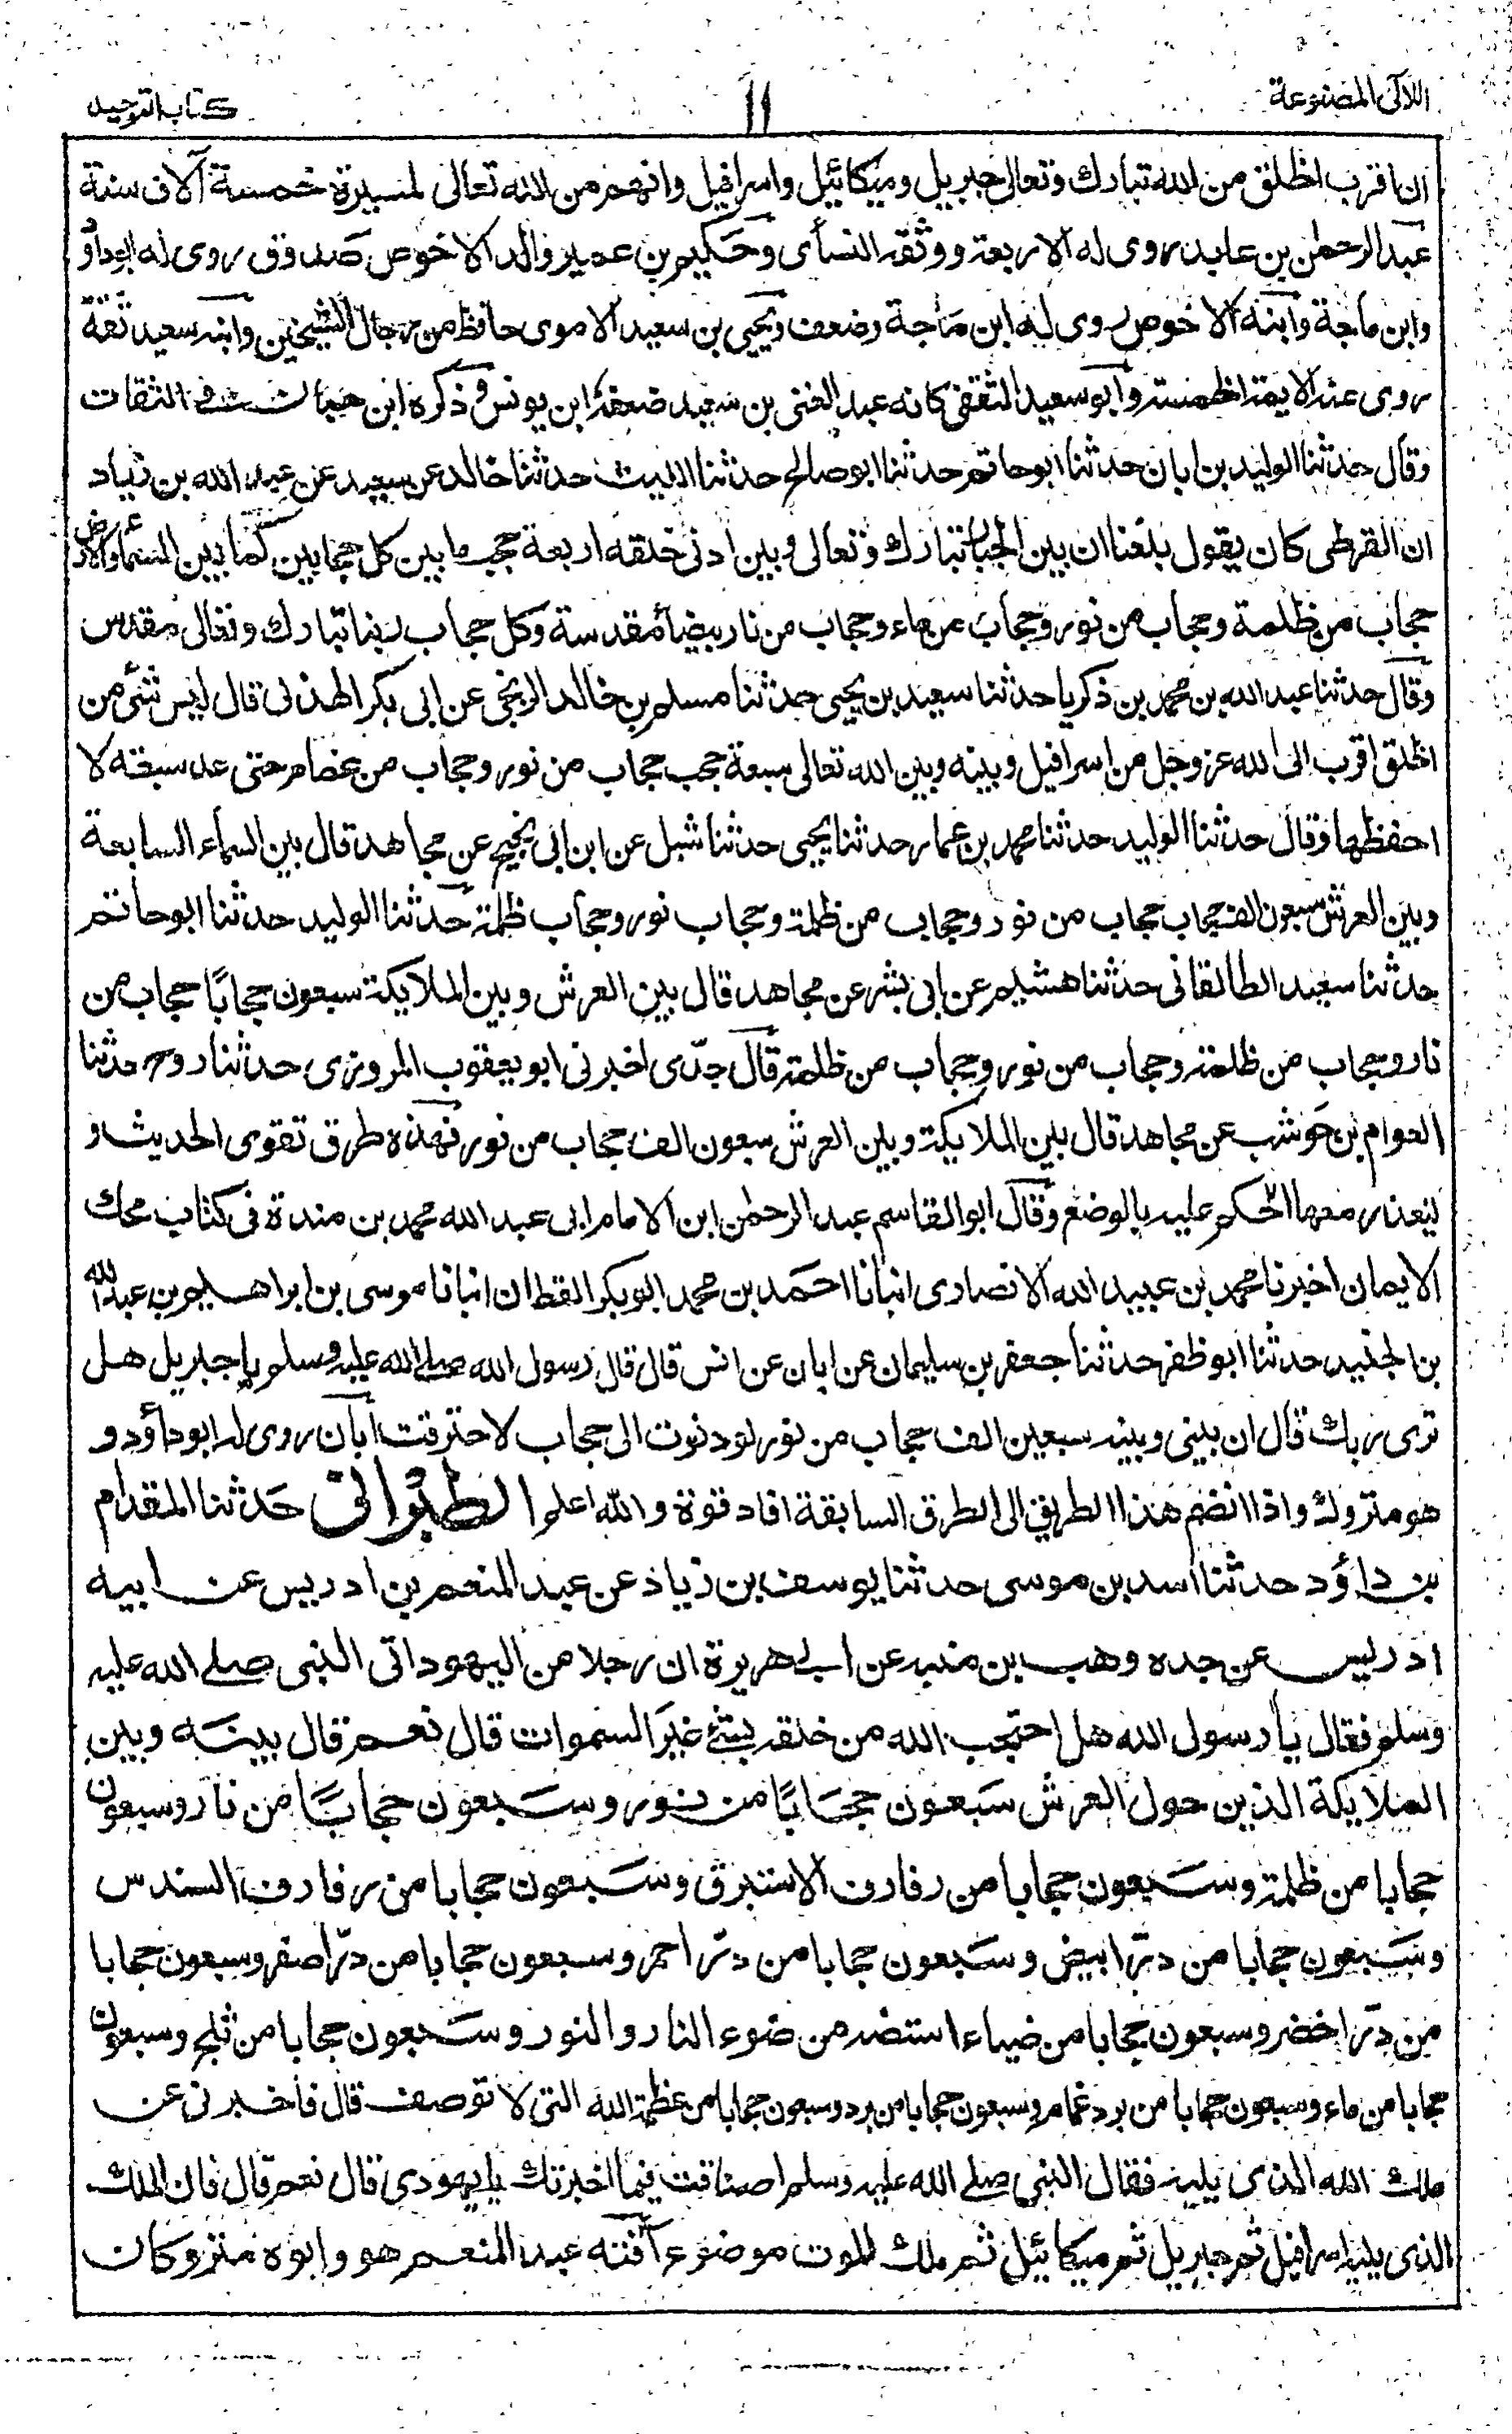 اللآلى المصنوعة
١١
كتاب التوحيد
ان اقرب الخلق من الله تبارك وتعالى جبريل وميكائيل واسرافيل وانهم من الله تعالى لمسيرة خمسة آلاف سنة
عبد الرحمن بن عايد روى له الاربعة ووثقه النسأى وحكيم بن عمير والد الاحوص صدوق روى له ابوداؤد
وابن ماجة وابنه الاحوص روى له ابن ماجة وضعف ويحيى بن سعيد الاموى حافظ من رجال الشيخين وابنه سعيد ثقة
روى عنه الايمة الخمسة وابو سعيد الثقفى كانه عبد الغنى بن سعيد ضعفه ابن يونس وذكره ابن حبان فى الثقات
وقال حدثنا الوليد بن ابان حدثنا ابوحاتم حدثنا ابو صالح حدثنا الليث حدثنا خالد عن سعيد عن عبد الله بن زياد
ان القرظى كان يقول بلغنا ان بين الجبار تبارك وتعالى وبين ادنى خلقه اربعة حجب ما بين كل حجابين كما بين السماء والارض
حجاب من ظلمة وحجاب من نور وحجاب من ماء وحجاب من نار بيضأ مقدسة وكل حجاب لربنا تبارك وتعالى مقدس
وقال حدثنا عبد الله بن محمد بن زكريا حدثنا سعيد بن يحيى حدثنا مسلم بن خالد الزنجى عن ابى بكر الهذلى قال ليس شئ من
الخلق اقرب الى الله عز وجل من اسرافيل وبينه وبين الله تعالى سبعة حجب حجاب من نور وحجاب من غمام حتى عد سبعة لا
احفظها وقال حدثنا الوليد حدثنا محمد بن عمار حدثنا يحيى حدثنا شبل عن ابن ابى نجيح عن مجاهد قال بين السماء السابعة
وبين العرش سبعون الف حجاب حجاب من نور وحجاب من ظلمة وحجاب نور وحجاب ظلمة حدثنا الوليد حدثنا ابوحاتم
حدثنا سعيد الطالقانى حدثنا هشيم عن ابى بشر عن مجاهد قال بين العرش وبين الملايكة سبعون حجابًا حجاب من
نار وحجاب من ظلمة وحجاب من نور وحجاب من ظلمة قال جدّى اخبرنى ابو يعقوب المروزى حدثنا روح حدثنا
العوام بن حوشب عن مجاهد قال بين الملايكة وبين العرش سبعون الف حجاب من نور فهذه طرق تقوى الحديث و
يتعذر معها الحكم عليه بالوضع وقال ابو القاسم عبد الرحمن ابن الامام ابى عبد الله محمد بن مندة فى كتاب محك
الايمان اخبرنا محمد بن عبيد الله الانصارى انبانا احمد بن محمد ابو بكر القطان انبانا موسى بن ابراهيم بن عبد الله
بن الجنيد حدثنا ابو ظفر حدثنا جعفر بن سليمان عن ابان عن انس قال قال رسول الله صلى الله عليه وسلم يا جبريل هل
ترى ربك قال ان بينى وبينه سبعين الف حجاب من نور لو دنوت الى حجاب لاحترقت ابان روى له ابو داؤد و
هو متروك واذا انضم هذا الطريق الى الطرق السابقة افاد قوة والله اعلم الطبرانى حدثنا المقدام
بن داؤد حدثنا اسد بن موسى حدثنا يوسف بن زياد عن عبد المنعم بن ادريس عن ابيه
ادريس عن جده وهب بن منبه عن ابى هريرة ان رجلا من اليهود اتى النبى صلى الله عليه
وسلم فقال يا رسول الله هل احتجب الله من خلقه بشئ غير السموات قال نعم قال بينه وبين
الملايكة الذين حول العرش سبعون حجابًا من نور وسبعون حجابًا من نار وسبعون
حجابا من ظلمة وسبعون حجابا من رفارف الاستبرق وسبعون حجابا من رفارف السندس
وسبعون حجابا من درّ ابيض وسبعون حجابا من درّ احمر وسبعون حجابا من درّ اصفر وسبعون حجابا
من درّ اخضر وسبعون حجابا من ضياء استضر من ضوء النار والنور وسبعون حجابا من ثلج وسبعون
حجابا من ماء وسبعون حجابا من برد غمام وسبعون حجابا من برد وسبعون حجابا من عظمة الله التى لا توصف قال فاخبرنى عن
ملك الله الذى يليه فقال النبى صلى الله عليه وسلم اصدقت فيما اخبرتك يا يهودى قال نعم قال فان الملك
الذى يليه اسرافيل ثم جبريل ثم ميكائيل ثم ملك الموت موضوع آفته عبد المنعم هو وابوه متروكان